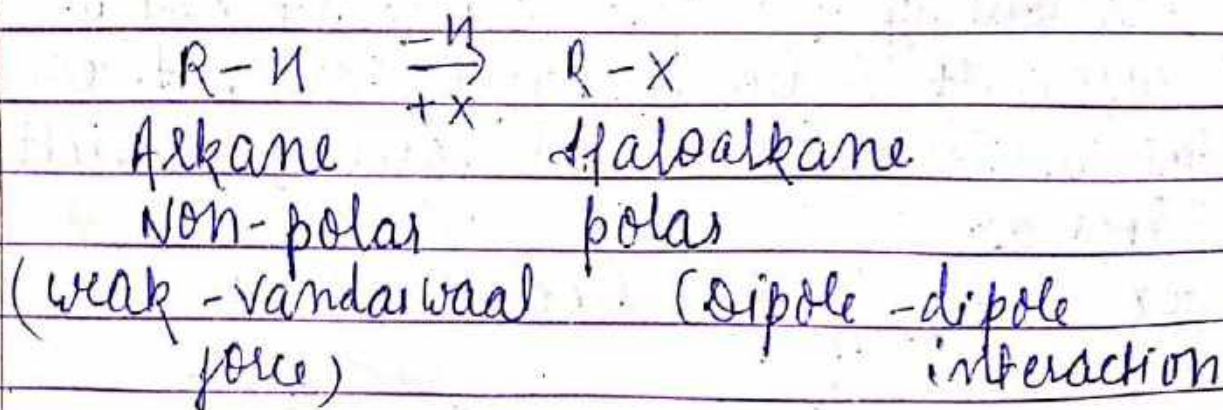 -H
R-H → R-X
+X
Alkane Haloalkane
Non-polar polar
(weak -vandarwaal (Dipole -dipole
force) interaction